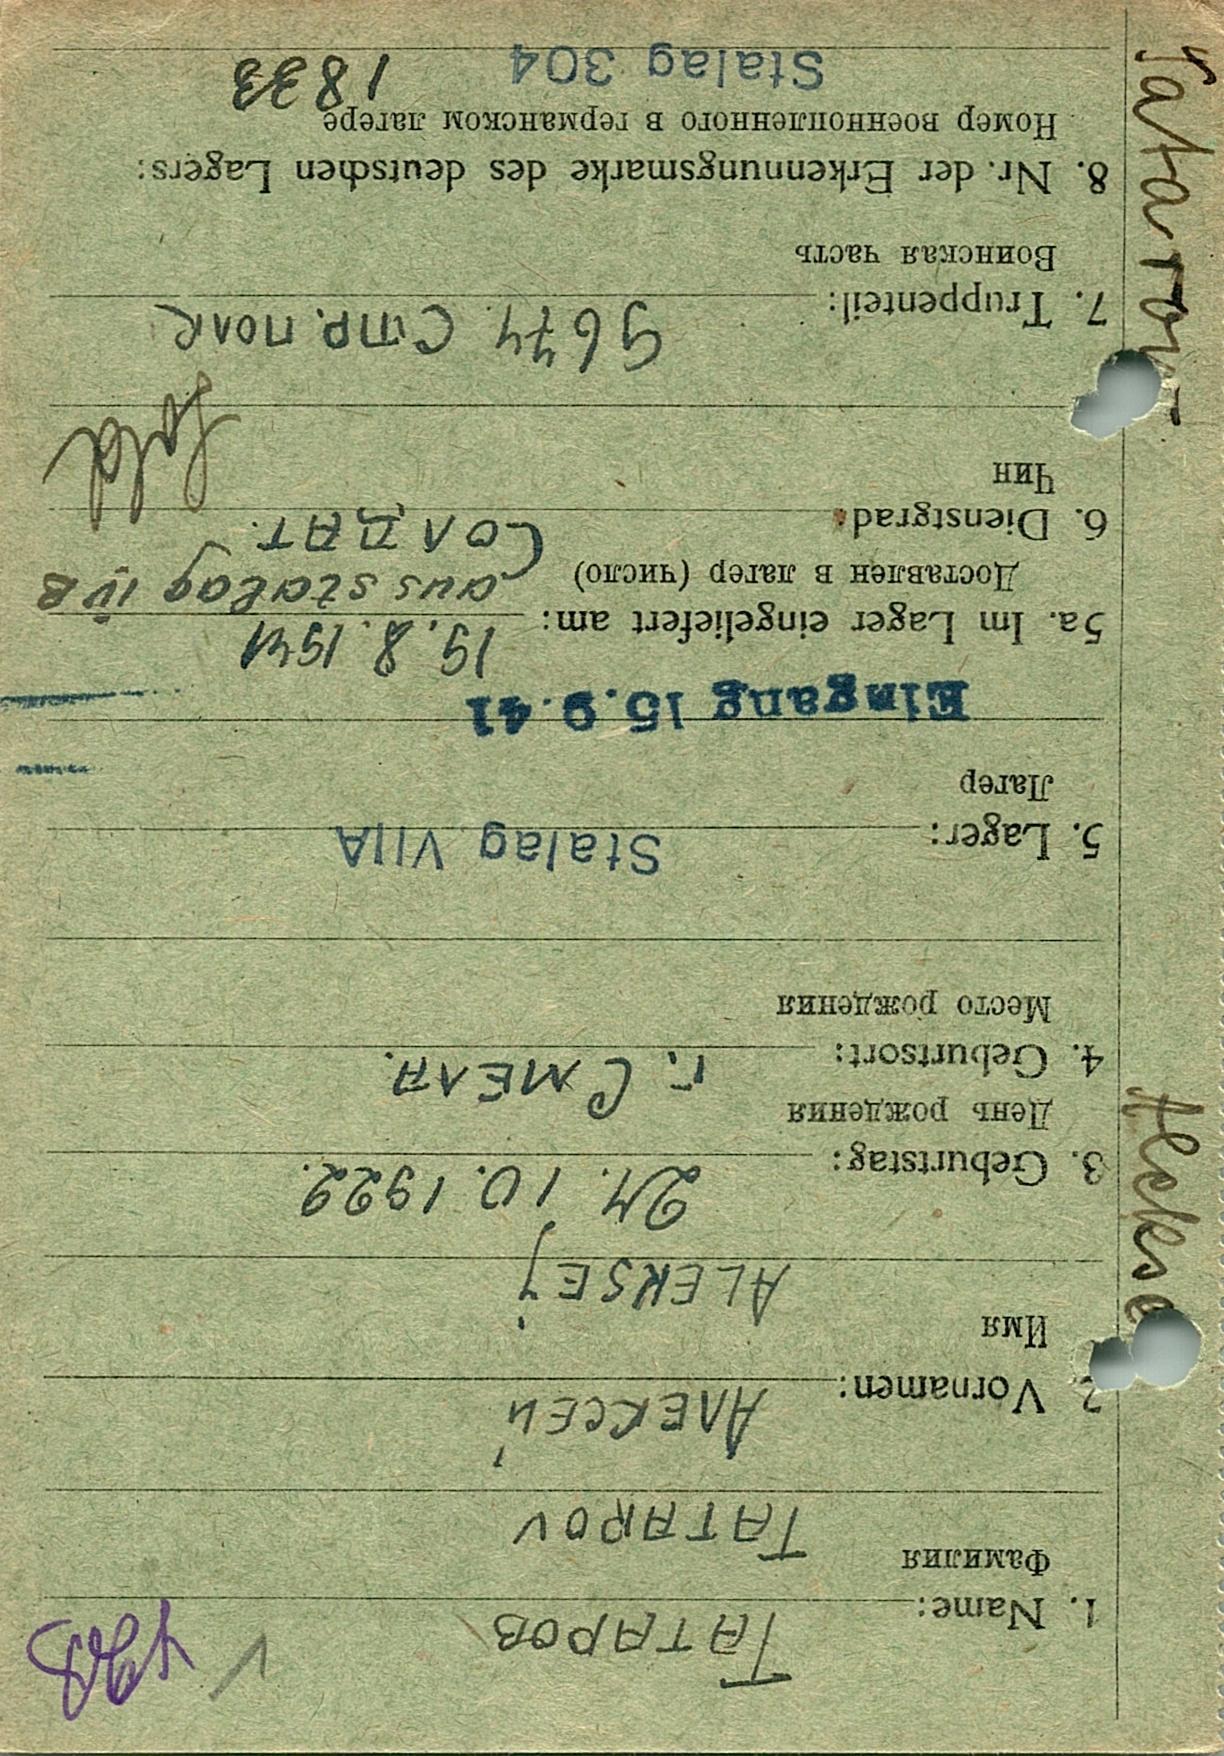 1. Name: ТАТАРОВ
Фамилия
TATAROV
2. Vornamen: АЛЕКСЕЙ
Имя
ALEKSEJ
3. Geburtstag: 24. 10. 1922.
День рождения
4. Geburtsort: г. СМЕЛА.
Место рождения
5. Lager: Stalag VIIA
Лагер
Eingang 15.9.41
5a. Im Lager eingeliefert am: 19. 8. 1941
Доставлен в лагер (число) aus stalag IV B
6. Dienstgrad: СОЛДАТ. Sold
Чин
7. Truppenteil: Стр. полк
Воинская часть
8. Nr. der Erkennungsmarke des deutschen Lagers:
Номер военнопленного в германском лагере
Stalag 304 1833
Tatarow
Alekse